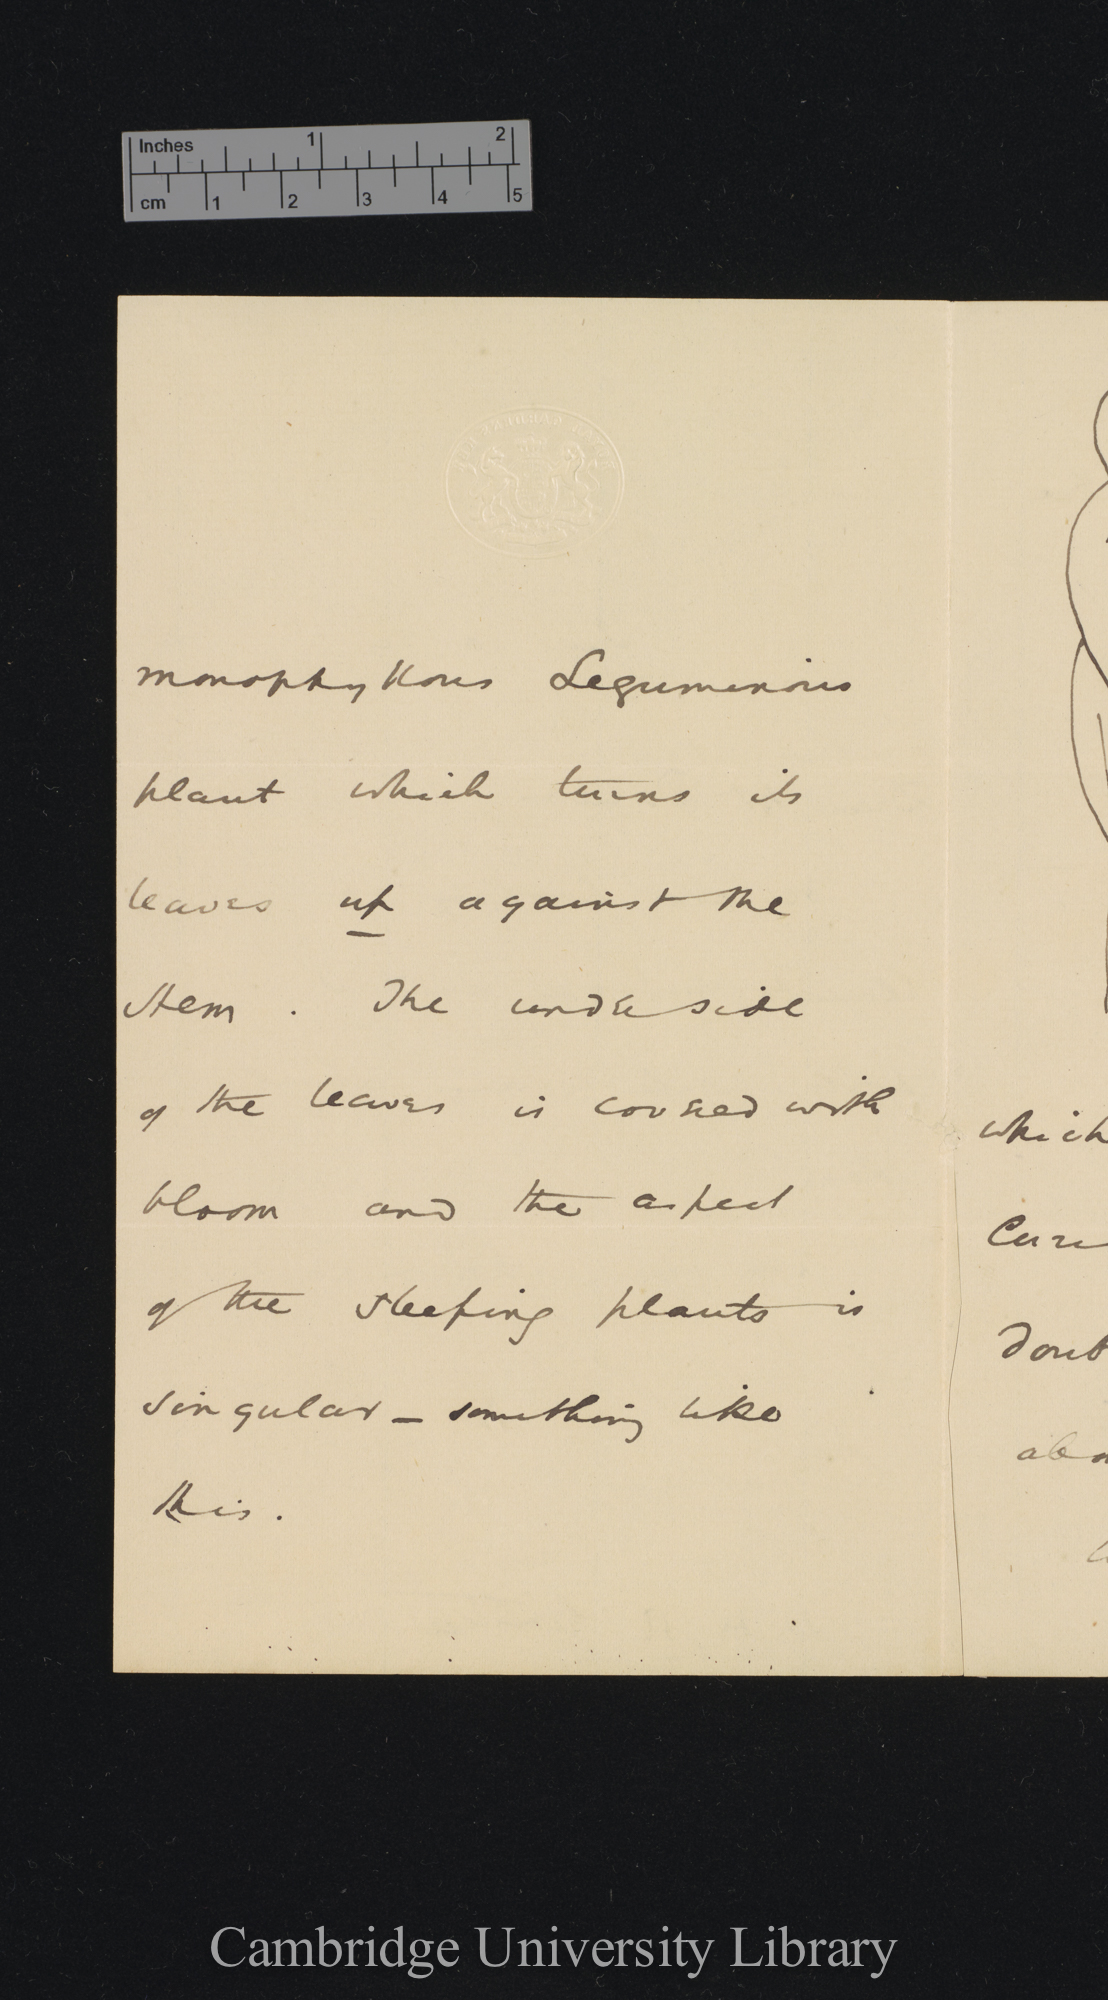 Inches 1 2
cm 1 2 3 4 5
monophyllous Leguminous
plant which turns its
leaves up against the
stem. The underside
of the leaves is covered with
bloom and the aspect
of the sleeping plants is
singular – something like
this.
which
Cambridge University Library